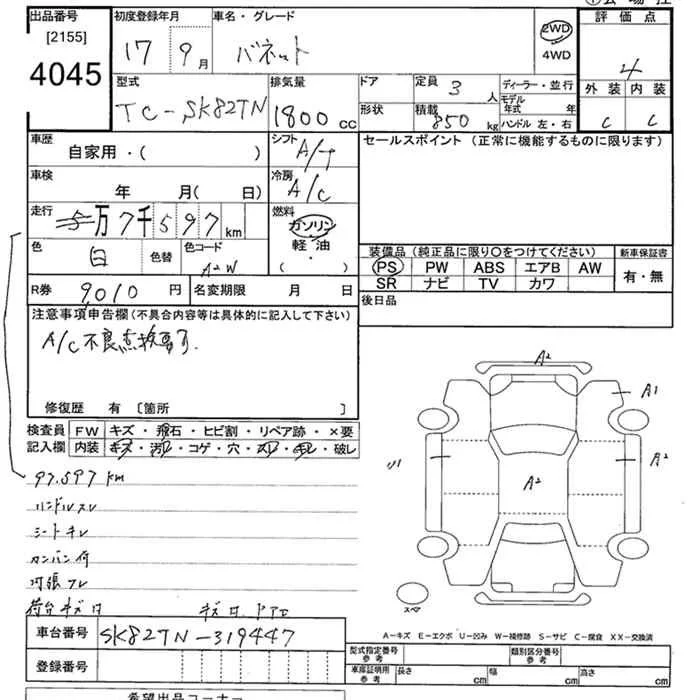 出品番号 初度登録年月 車名・グレード 評価点
[2155]
4045
17 9月 バネット 2WD 4WD 4
型式 排気量 ドア 定員 3人 ディーラー・並行 外装 内装
TC-SK82TN 1800cc 形状 積載 850kg モデル年式 年 C C
ハンドル 左・右
車歴 シフト セールスポイント (正常に機能するものに限ります)
自家用・( ) A/T
車検 冷房
年 月( 日) A/C
走行 燃料
万7千597km ガソリン
軽・油
・
( )
色 白 色替 色コード A2W
装備品(純正品に限り○をつけてください) 新車保証書
PS PW ABS エアB AW 有・無
SR ナビ TV カワ
R券 9,010円 名変期限 月 日
後日品
注意事項申告欄(不具合内容等は具体的に記入して下さい)
A/C不良点検要す.
修復歴 有 〔箇所 〕
検査員 FW キズ・飛石・ヒビ割・リペア跡・×要
記入欄 内装 キズ・汚レ・コゲ・穴・スレ・キレ・破レ
97,597km
ハンドルスレ
シートキレ
カンバン有
荷台キズ
A2
A1
A2
A2
スペア
A−キズ E−エクボ U−凹み W−補修跡 S−サビ C−腐食 XX−交換済
車台番号 SK82TN-319447
型式指定番号 参考 類別区分番号 参考
登録番号
車庫証明用 参考 長さ cm 幅 cm 高さ cm
希望出品コーナー